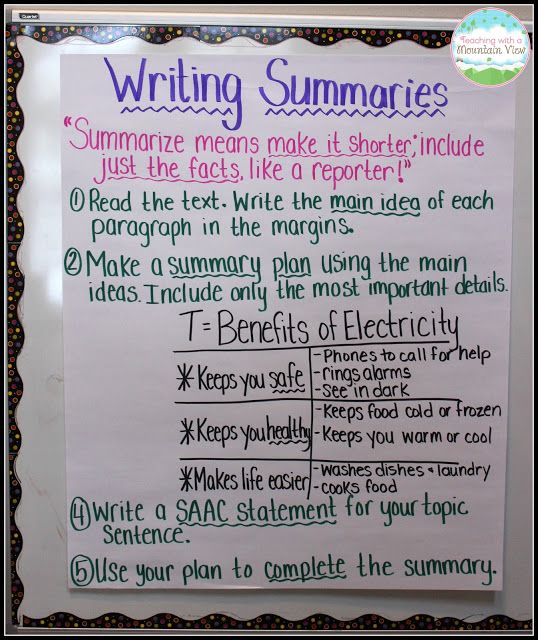 Quartet
Teaching with a
Mountain View
Writing Summaries
"Summarize means make it shorter; include
just the facts, like a reporter!"
① Read the text. Write the main idea of each
paragraph in the margins.
② Make a summary plan using the main
ideas. Include only the most important details.
T = Benefits of Electricity
* Keeps you safe
- Phones to call for help
- rings alarms
- See in dark
* Keeps you healthy
- Keeps food cold or frozen
- Keeps you warm or cool
* Makes life easier
- washes dishes + laundry
- cooks food
④ Write a SAAC statement for your topic
Sentence.
⑤ Use your plan to complete the summary.